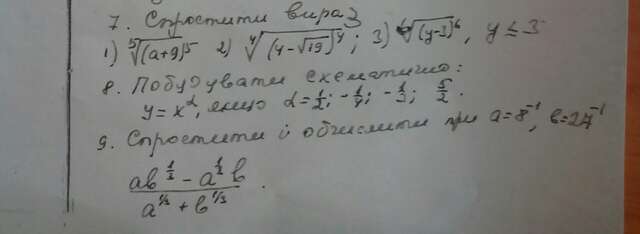 7. Спростити вираз
1) ⁵√(a+9)⁵ 2) ⁴√(4-√19)⁴; 3) ⁶√(y-3)⁶, y ≤ 3
8. Побудувати схематично:
y = x^α, якщо α = 1/2; -1/4; -1/3; 5/2.
9. Спростити і обчислити при a = 8⁻¹, b = 27⁻¹
(ab^(1/3) - a^(1/3) b) / (a^(1/3) + b^(1/3)).